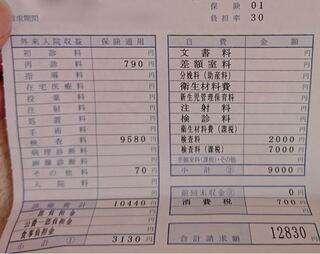 保険 01
負担率 30
請求期間
外来入院収益 保険適用
初診料 円
再診料 790 円
指導料 円
在宅医療料 円
投薬料 円
注射料 円
処置料 円
手術料 円
検査料 9580 円
病理診断料 円
画像診断料 円
その他料 70 円
入院料 円
診療費計 10440 円
一部負担金 円
公費一部負担金 円
食事負担金 円
小計 ① 3130 円
自費 金額
文書料 円
差額室料 円
分娩料(助産料) 円
衛生材料費 円
新生児管理保育料 円
注射料 円
検診料 円
衛生材料費(課税) 円
検査料 2000 円
検査料(課税) 7000 円
差額室料(課税)・その他 円
小計 ② 9000 円
前回未収金③ 0 円
消費税 700 円
合計請求額 12830 円